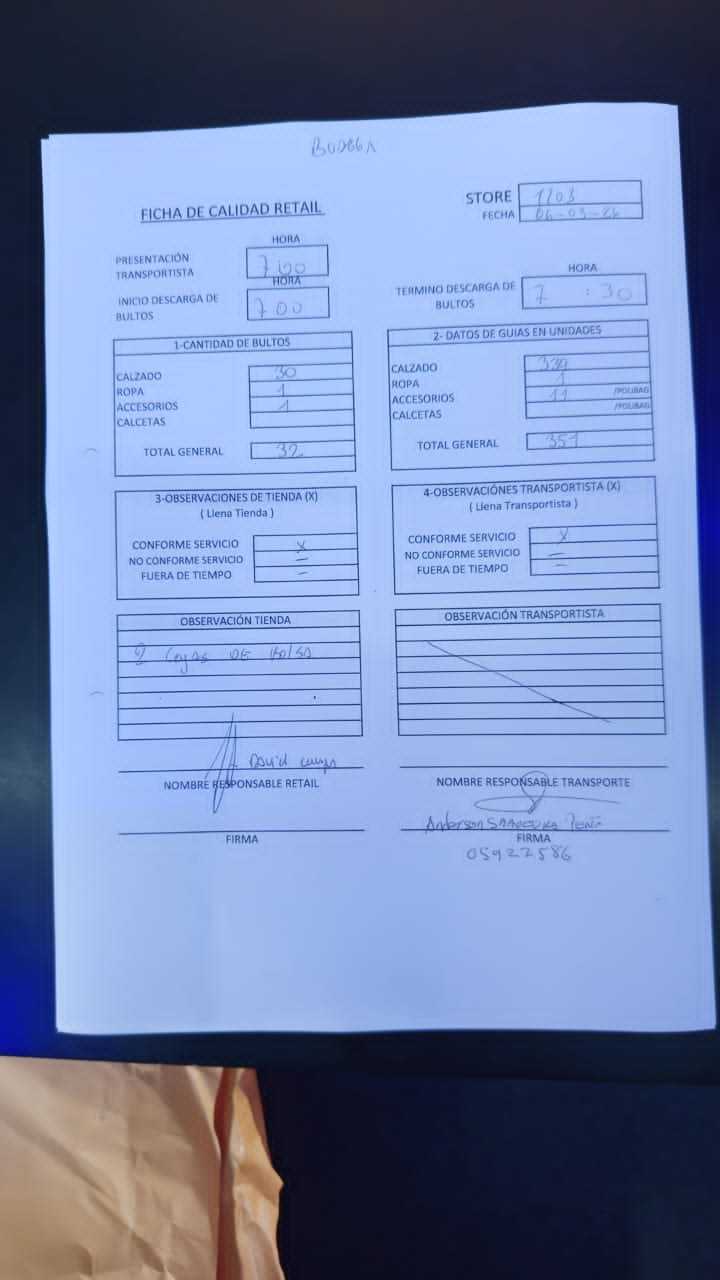 BODEGA
FICHA DE CALIDAD RETAIL
STORE 1103
FECHA 06-03-26
HORA
PRESENTACIÓN TRANSPORTISTA 7 00
HORA
INICIO DESCARGA DE BULTOS 7 00
HORA
TERMINO DESCARGA DE BULTOS 7 : 30
1-CANTIDAD DE BULTOS
CALZADO 30
ROPA 1
ACCESORIOS 1
CALCETAS
TOTAL GENERAL 32
2- DATOS DE GUIAS EN UNIDADES
CALZADO 339
ROPA 1
ACCESORIOS 11 /POLIBAG
CALCETAS /POLIBAG
TOTAL GENERAL 351
3-OBSERVACIONES DE TIENDA (X)
( Llena Tienda )
CONFORME SERVICIO X
NO CONFORME SERVICIO –
FUERA DE TIEMPO –
4-OBSERVACIÓNES TRANSPORTISTA (X)
( Llena Transportista )
CONFORME SERVICIO X
NO CONFORME SERVICIO –
FUERA DE TIEMPO –
OBSERVACIÓN TIENDA
2 Cajas DE BOLSA
OBSERVACIÓN TRANSPORTISTA
David
NOMBRE RESPONSABLE RETAIL
FIRMA
NOMBRE RESPONSABLE TRANSPORTE
Anderson Peña
FIRMA
05922586